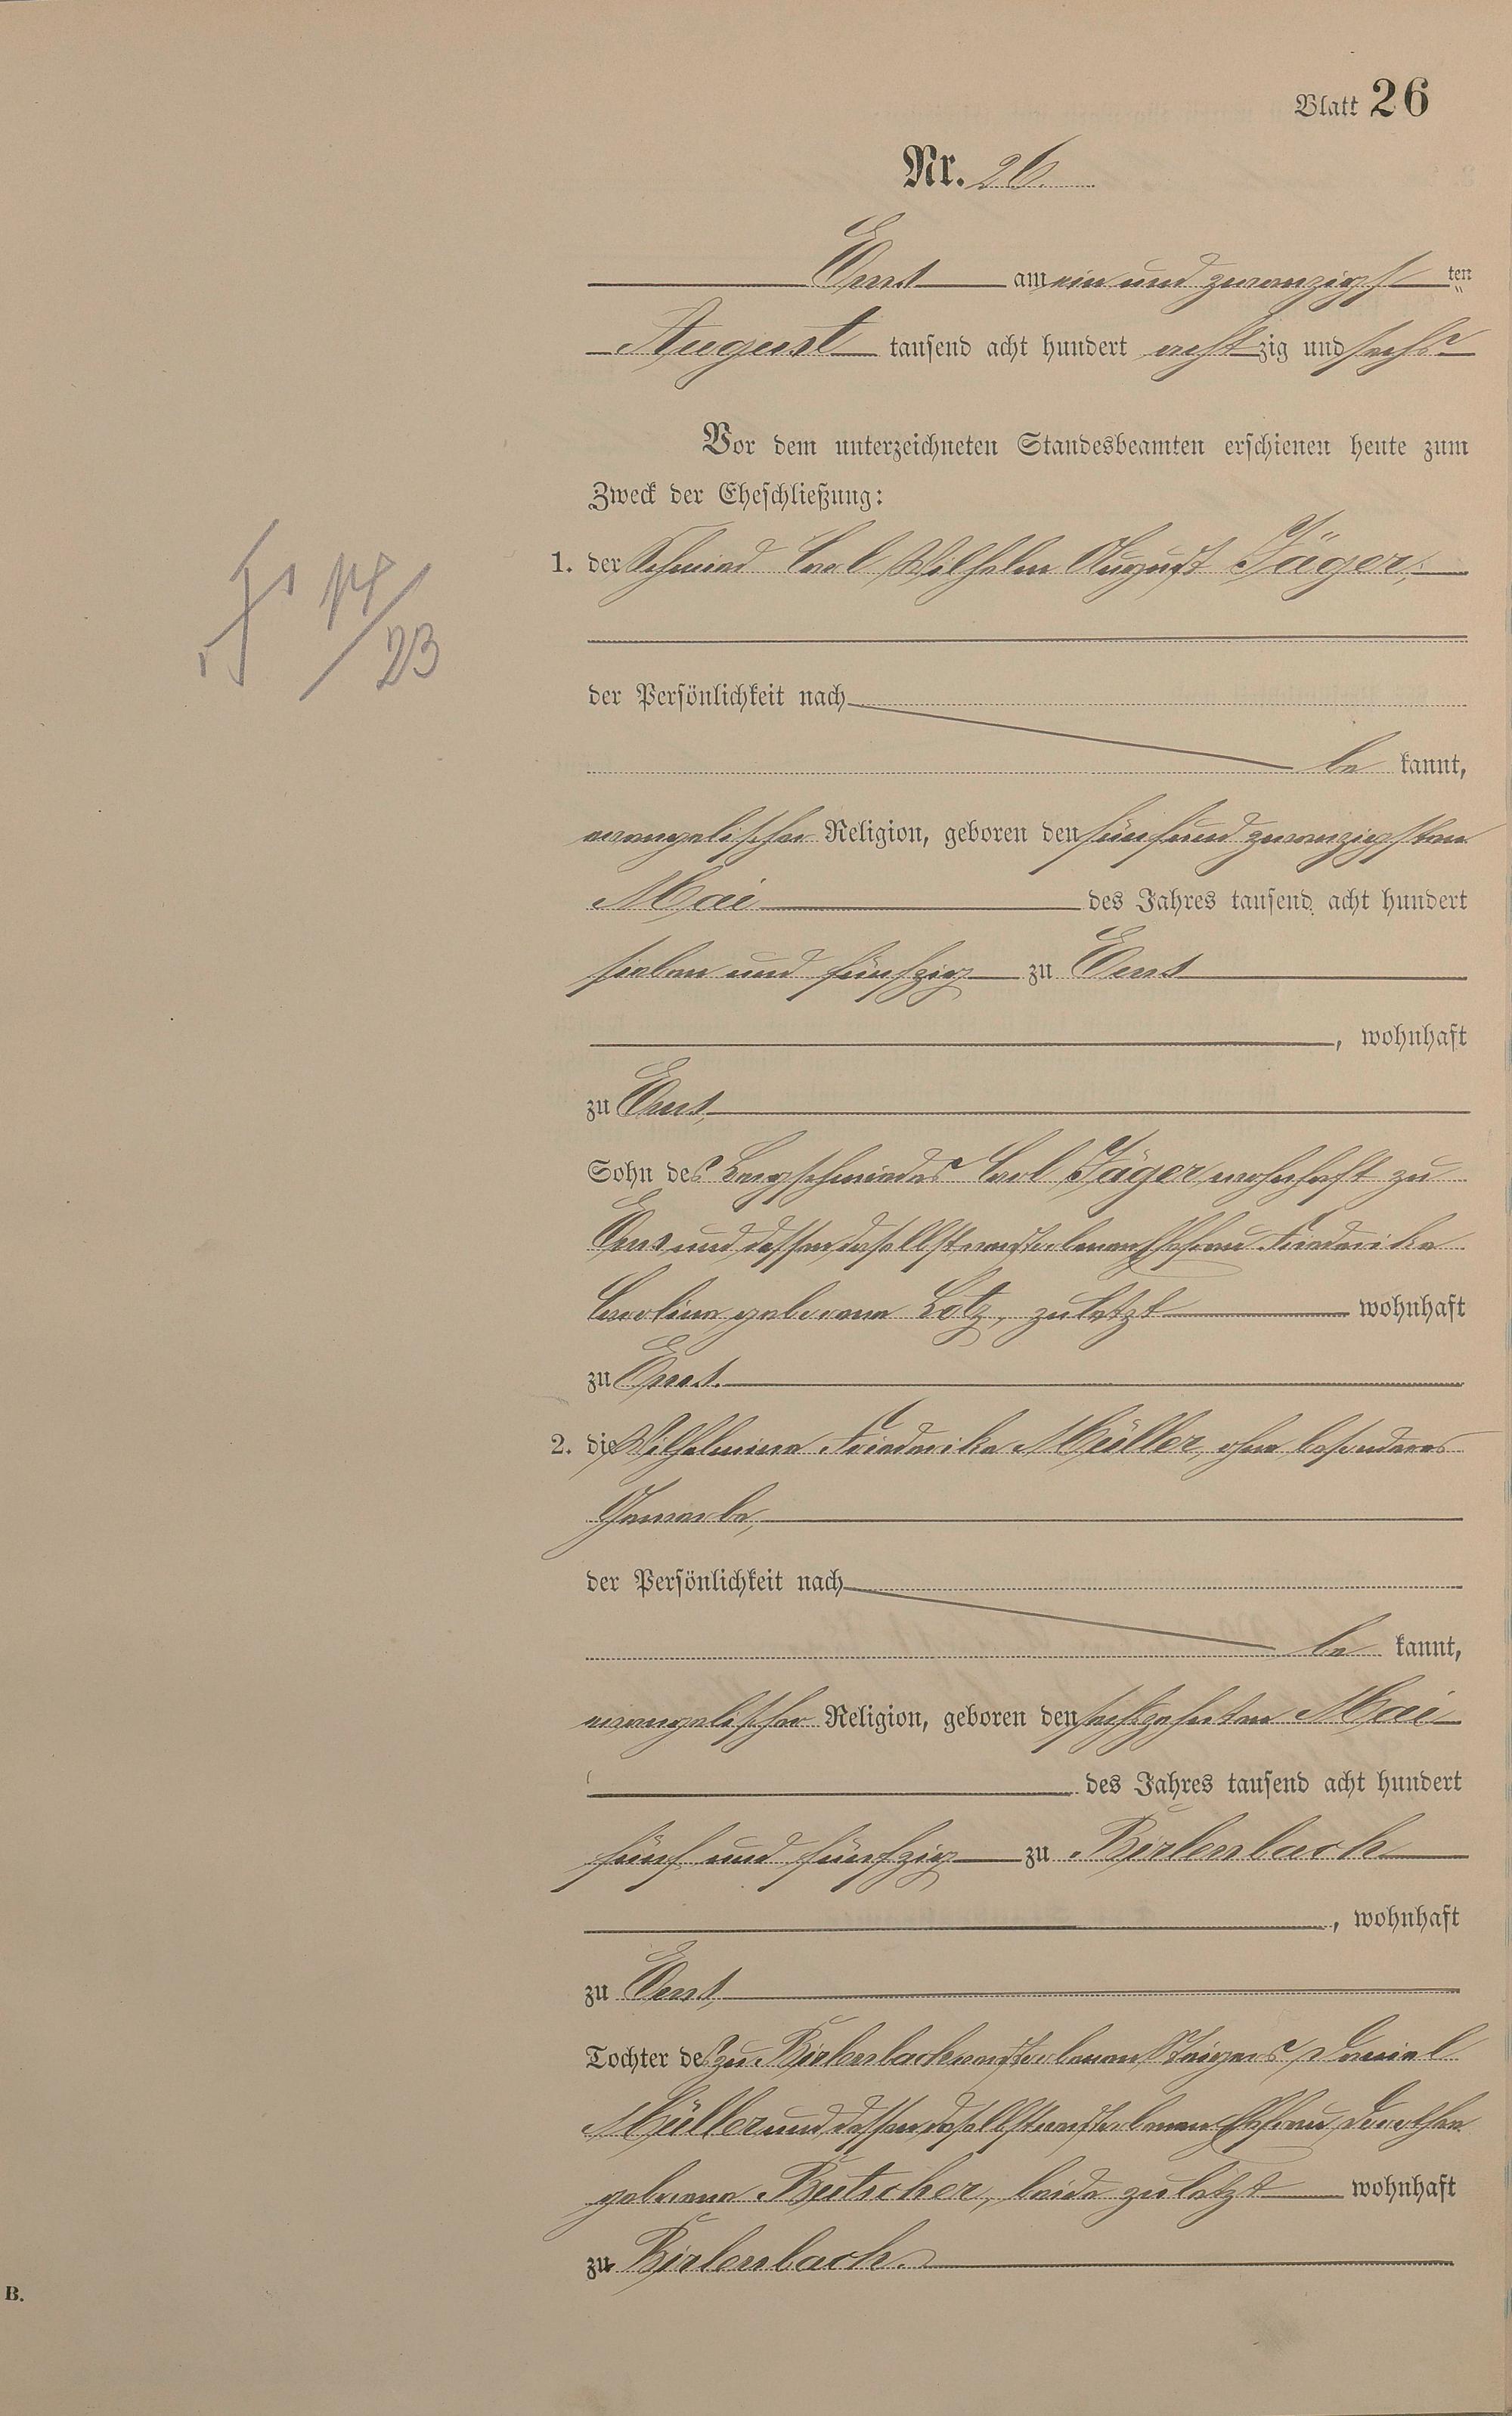 Blatt 26
Nr. 26.
Ems am ein und zwanzigst ten
August tausend acht hundert achtzig und sechs
Vor dem unterzeichneten Standesbeamten erschienen heute zum
Zweck der Eheschließung:
1. der Schmied Carl Wilhelm August Jäger,
der Persönlichkeit nach
be kannt,
evangelischer Religion, geboren den fünf und zwanzigsten
Mai des Jahres tausend acht hundert
sieben und fünfzig zu Ems
, wohnhaft
zu Ems,
Sohn des Bergschmiedes Carl Jäger, wohnhaft zu
Ems und dessen daselbst verstorbenen Ehefrau Friederike
Caroline geborene Lotz, zuletzt wohnhaft
zu Ems.
2. die Wilhelmine Friederike Müller, ohne besonderes
Gewerbe,
der Persönlichkeit nach
be kannt,
evangelischer Religion, geboren den sechszehnten Mai
des Jahres tausend acht hundert
fünf und fünfzig zu Birlenbach
, wohnhaft
zu Ems,
Tochter des zu Birlenbach verstorbenen Steigers Daniel
Müller und dessen daselbst verstorbenen Ehefrau Dorothea
geborene Butscher, beide zuletzt wohnhaft
zu Birlenbach.
B.
14/23